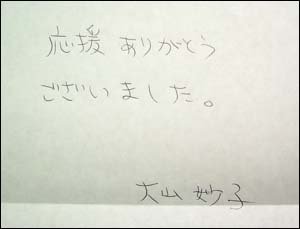 応援ありがとう
ございました。
大山妙子